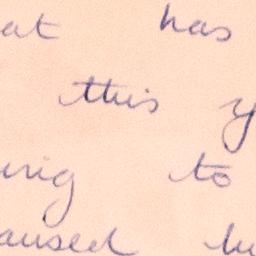 at has
this y
ing to
aused